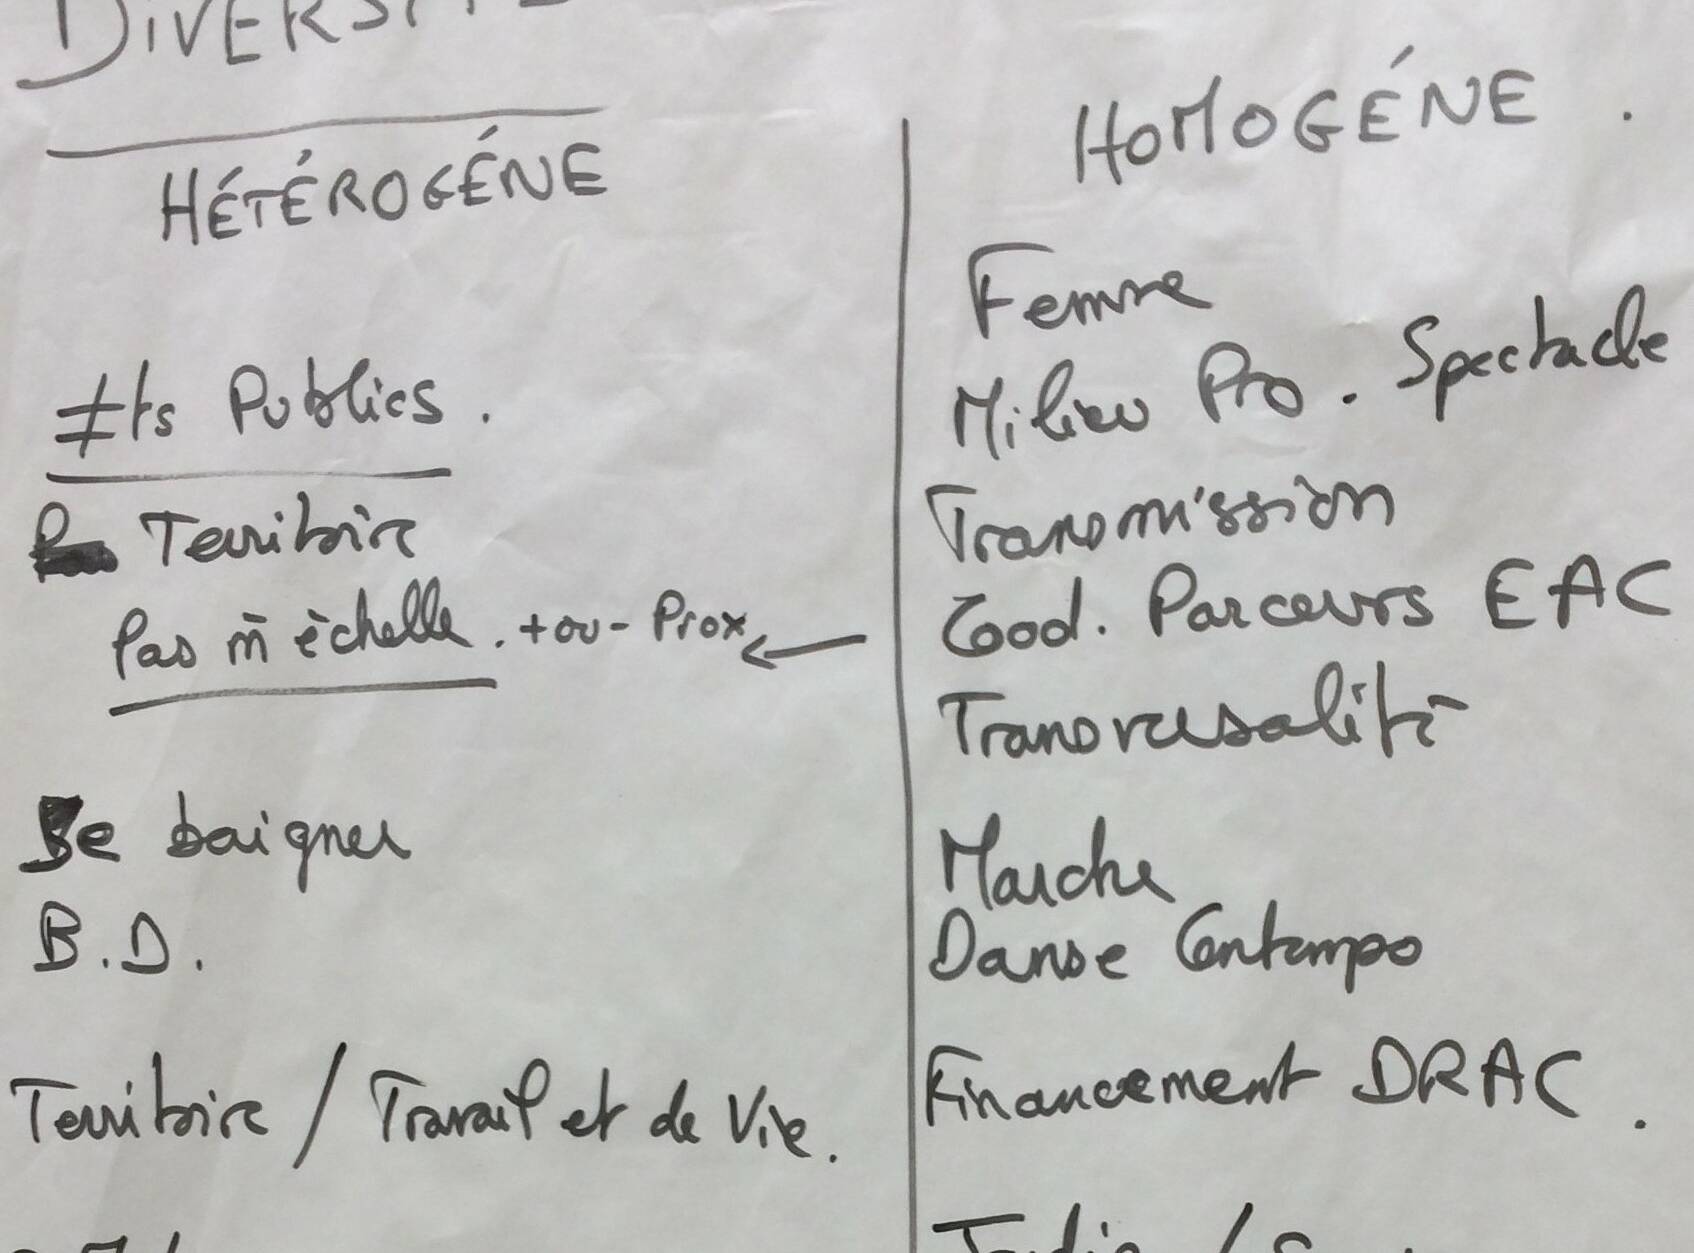 DIVERSITÉ
HÉTÉROGÉNE
≠ts Publics.
Territoire
Pas m̄ échelle. + ou - Prox ←
Se baigner
B.D.
Territoire / Travail et de Vie.
HOMOGÉNE.
Femme
Milieu Pro. Spectacle
Transmission
Cood. Parcours EAC
Transversalité
Marche
Danse Contempo
Financement DRAC.